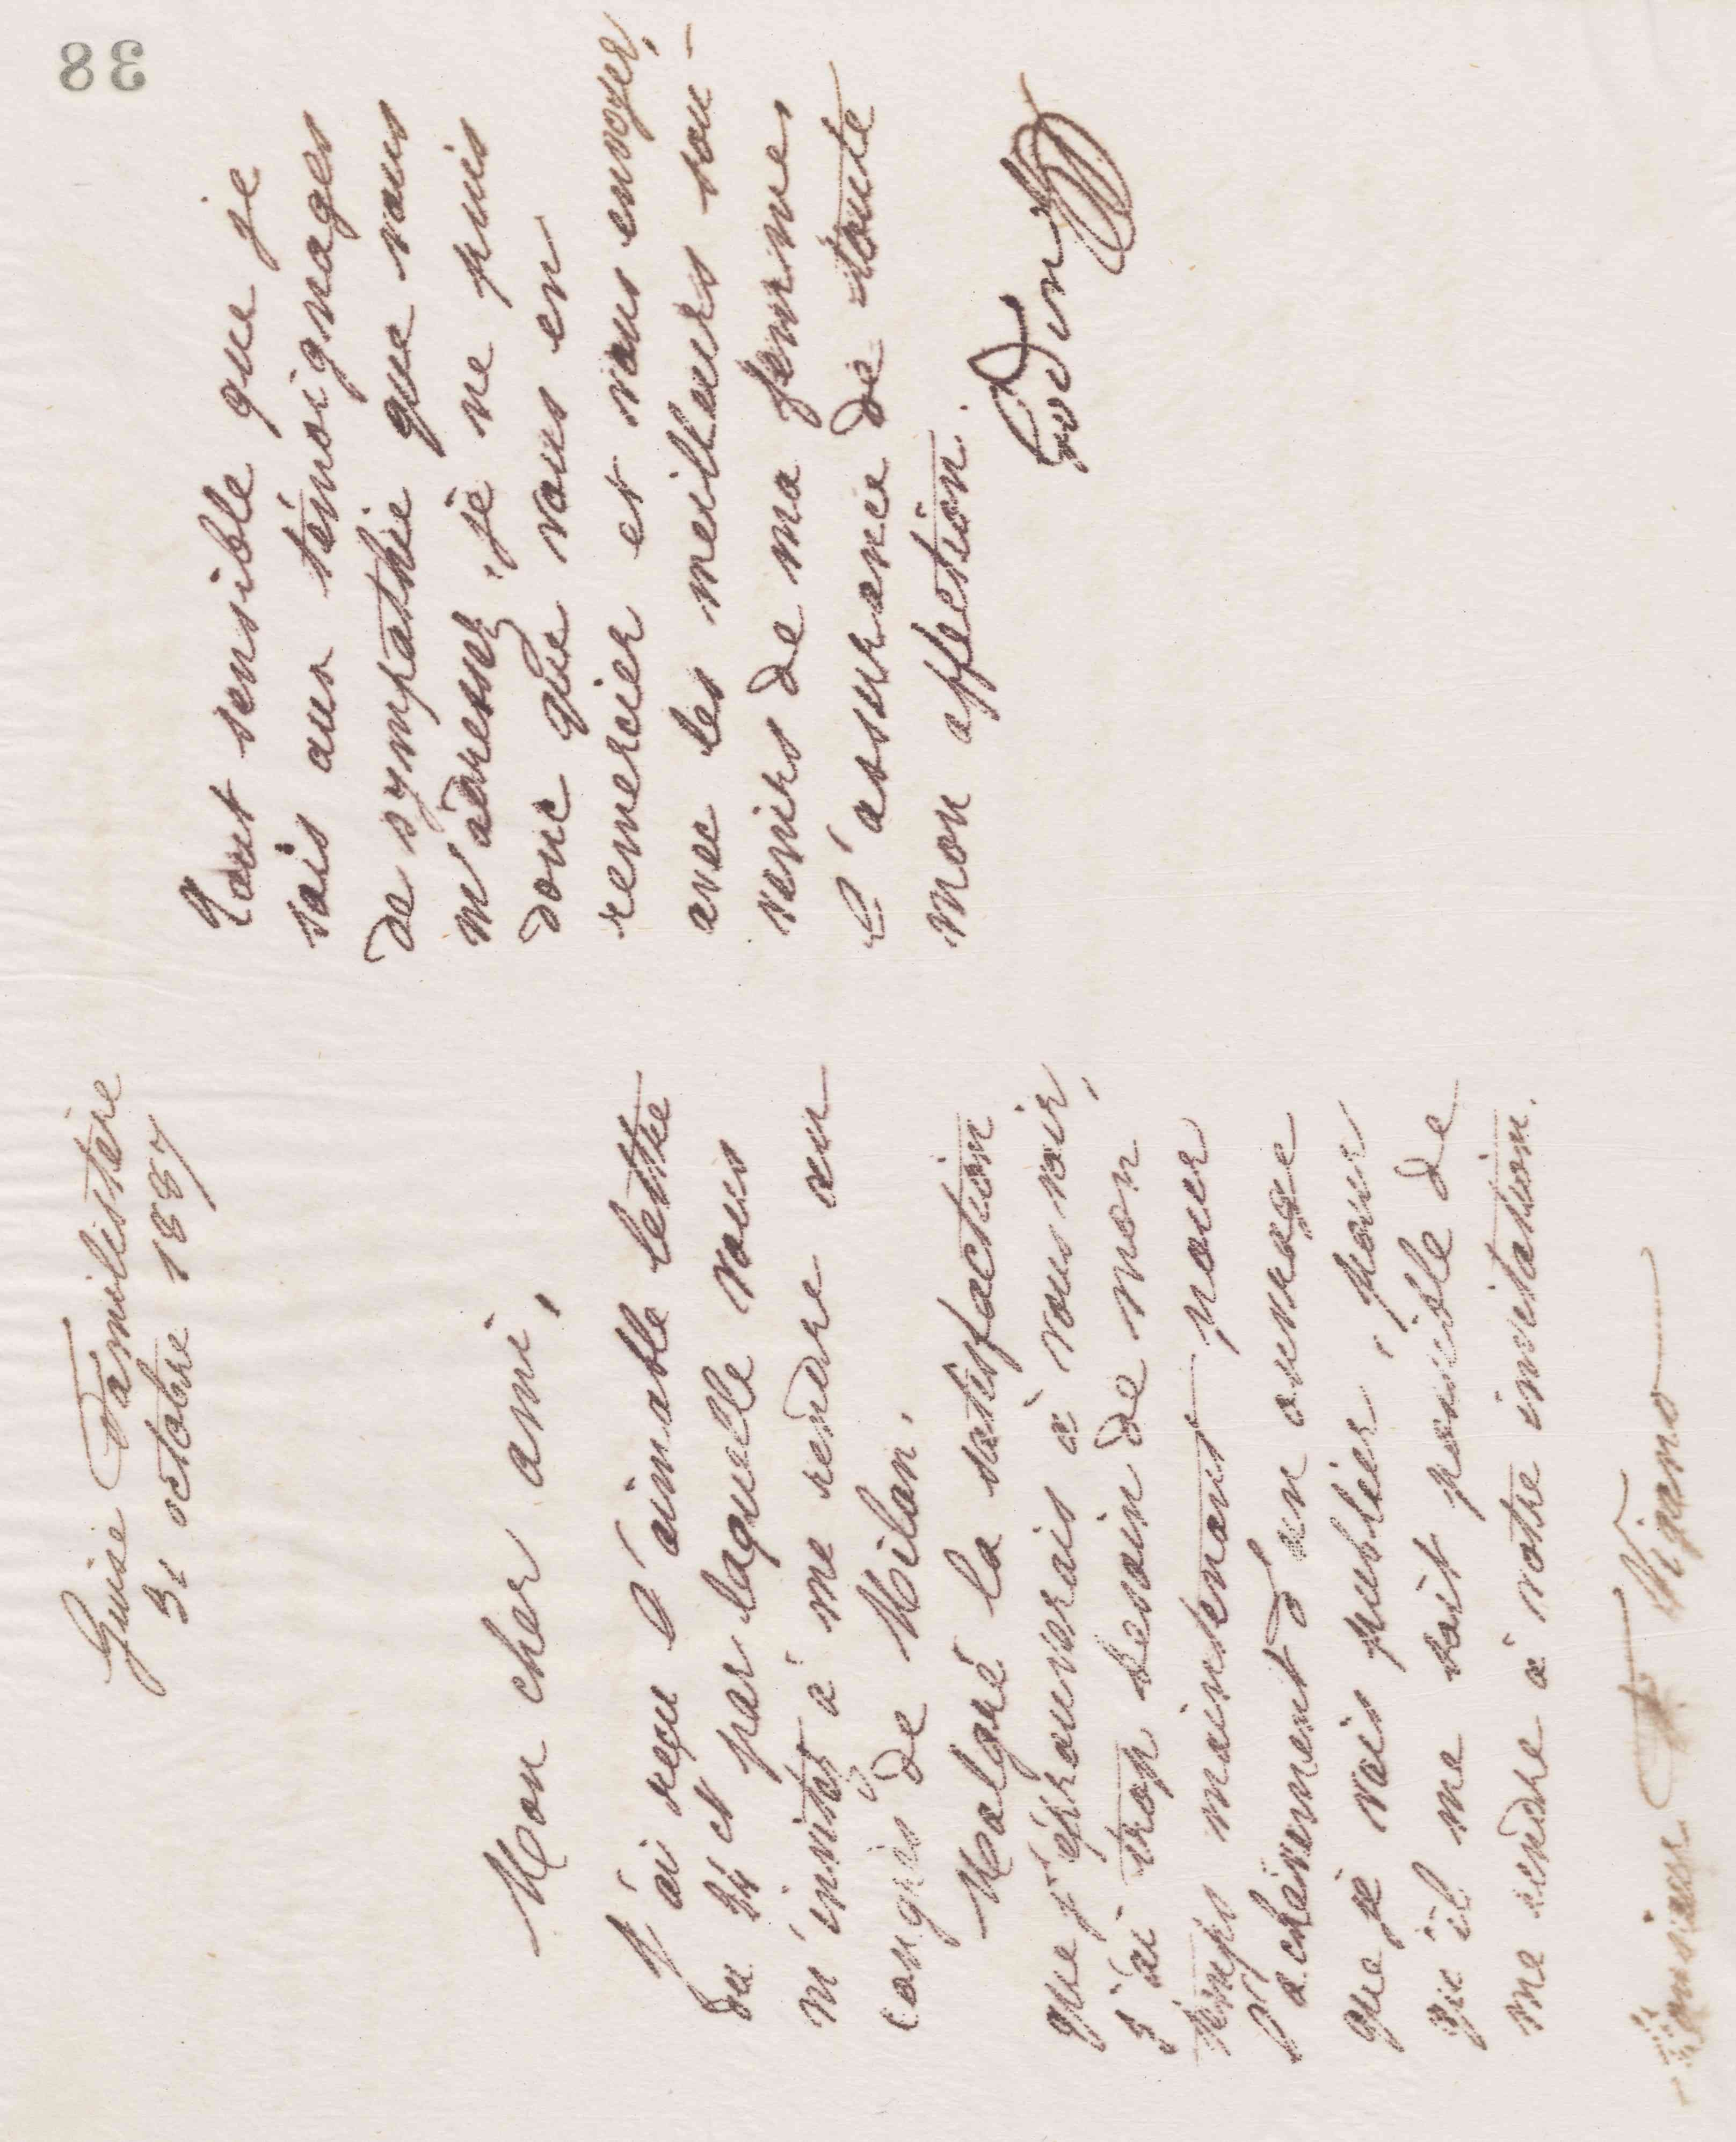 38
Guise Familistère
31 octobre 1887
Mon cher ami,
J'ai reçu l'aimable lettre
du 24 et par laquelle vous
m'invitez à me rendre au
congrès de Milan.
Malgré la satisfaction
que j'éprouverais à vous voir,
j'ai trop besoin de mon
temps maintenant pour
l'achèvement d'un ouvrage
que je vais publier, pour
qu'il me soit possible de
me rendre à votre invitation.
Monsieur F. Vigano
Tout sensible que je
sois aux témoignages
de sympathie que vous
m'adressez, je ne puis
donc que vous en
remercier et vous envoyer,
avec les meilleurs sou-
venirs de ma femme
l'assurance de toute
mon affection.
Godin